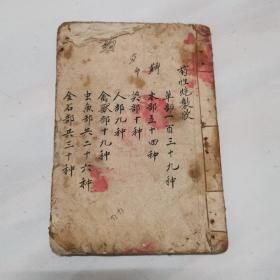 药性炮製歌
草部一百三十九种
木部五十四种
菓部十种
人部九种
禽獸部十九种
虫魚部共二十六种
金石部共三十种